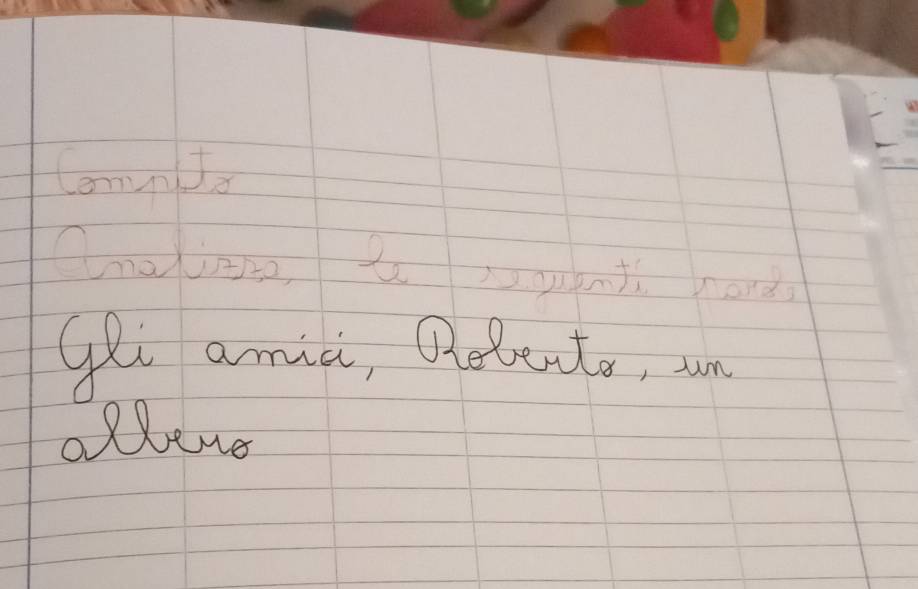 Compito
Analizza le seguenti parole
Gli amici, Roberto, un
albero